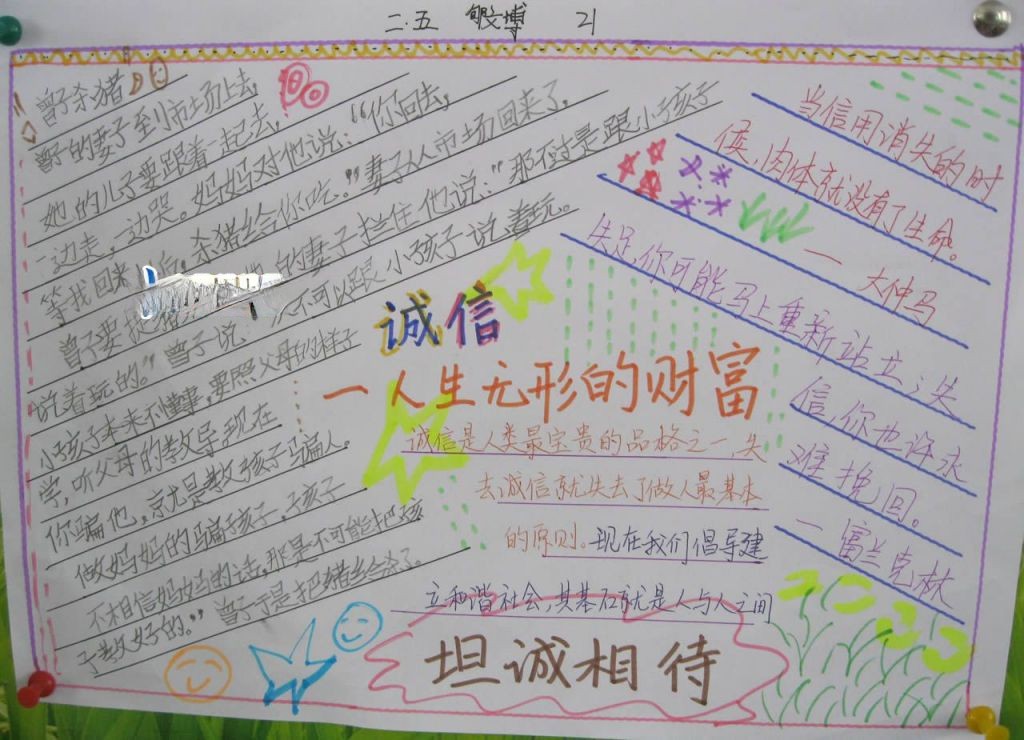 二.五 殷博 21
曾子杀猪
曾子的妻子到市场上去,
她的儿子要跟着一起去,
一边走,边哭。妈妈对他说:“你回去,
等我回来后,杀猪给你吃。”妻子从市场回来了,
曾子要把猪 的妻子拦住他说:“那不过是跟小孩子
说着玩的。”曾子说 不可以跟小孩子说着玩。
小孩子本来不懂事,要照父母的样子
学,听父母的教导,现在
你骗他,就是教孩子骗人。
做妈妈的骗孩子,孩子
不相信妈妈的话,那是不可能把孩
子教好的。”曾子于是把猪给杀了。
诚信
一人生无形的财富
诚信是人类最宝贵的品格之一,失
去诚信就失去了做人最基本
的原则。现在我们倡导建
立和谐社会,其基石就是人与人之间
坦诚相待
当信用消失的时
候,肉体就没有了生命。
—大仲马
失足,你可能马上重新站立;失
信,你也许永
难挽回。
—富兰克林